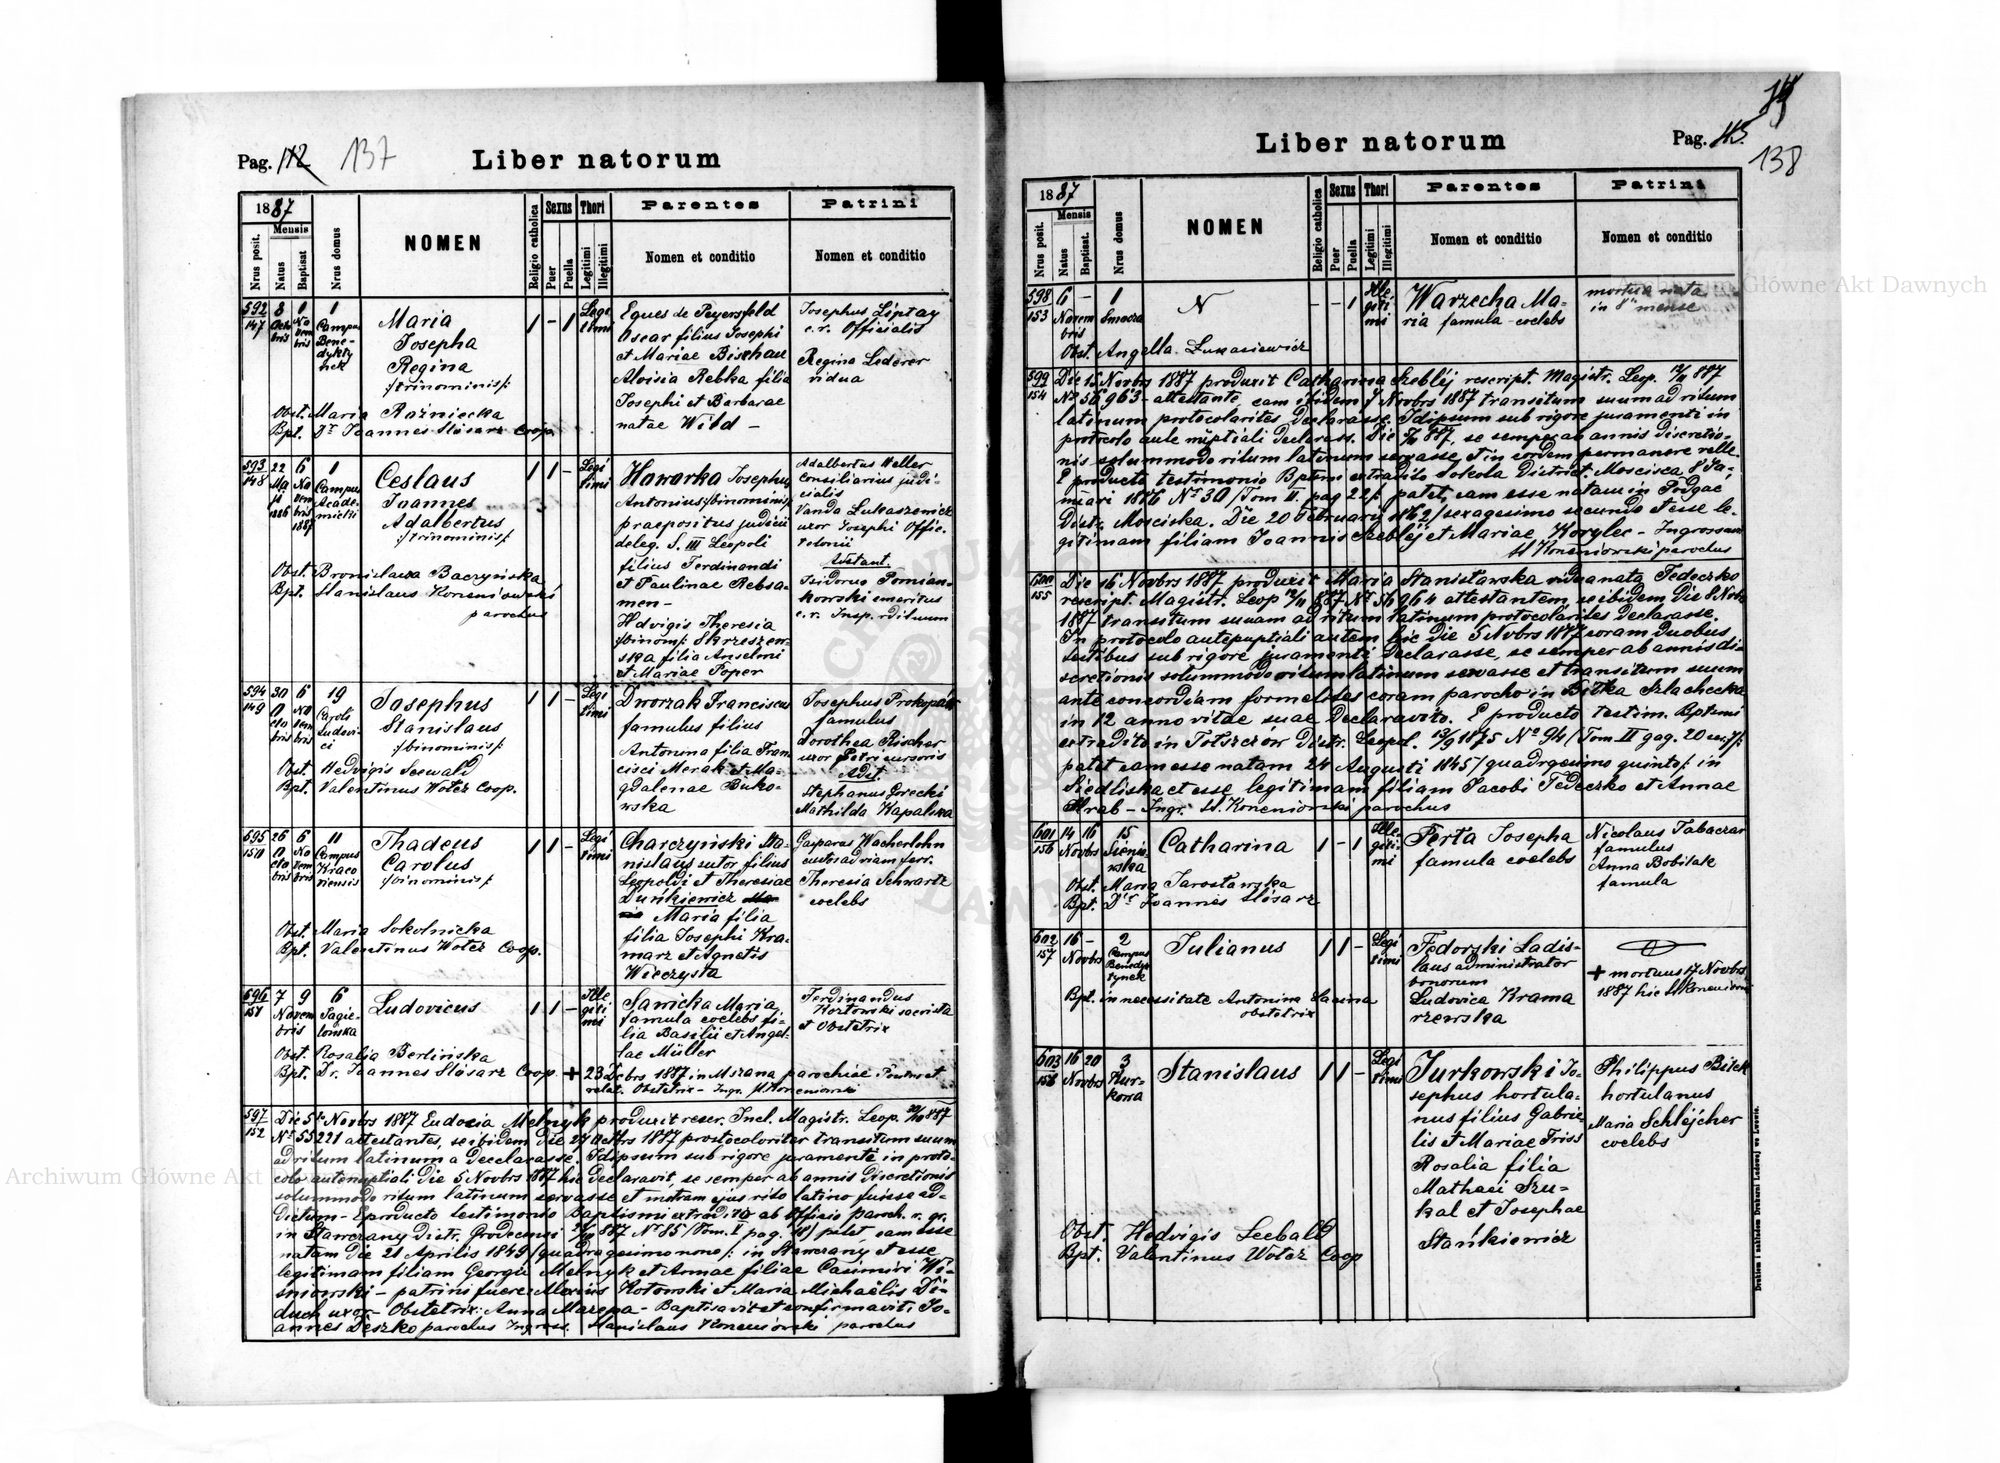 Pag. 112 137
Liber natorum
1887
Nrus posit.
Mensis
Natus
Baptisat
Nrus domus
NOMEN
Religio catholica
Sexus
Puer
Puella
Thori
Legitimi
Illegitimi
Parentes
Nomen et conditio
Patrini
Nomen et conditio
592
147
8 Octobris
1 Novembris
1
Campus Benedyktynek
Maria
Josepha
Regina
/:trinominis/:
1 - 1
Legitimi
Eques de Peyersfeld
Oscar filius Josephi
et Mariae Bischau
Aloisia Rebka filia
Josephi et Barbarae
natae Wild -
Josephus Liptay
c.r. Officialis
Regina Lederer
vidua
Obst. Maria Raźniecka
Bpt. Dr Joannes Slósarz Coop.
593
148
22 Maji 1886
6 Novembris 1887
1
Campus Academicki
Ceslaus
Joannes
Adalbertus
/:trinominis/:
1 1 -
Legitimi
Haworka Josephus
Antonius /:binominis/:
praepositus judicii
deleg. S. III Leopoli
filius Ferdinandi
et Paulinae Rebsamen -
Hdvigis Theresia
/:binom/: Skrzeszewska filia Anselmi
et Mariae Poper
Adalbertus Weller
consiliarius judicialis
Vanda Lukaszewicz
uxor Josephi Offic.
telonii
Astant.
Isidorus Pomiankowski emeritus
c.r. Insp. rdituum
Obst. Bronislava Baczyńska
Bpt. Stanislaus Koneniowski
parochus
594
149
30 Octobris
6 Novembris
19
Caroli Ludovici
Josephus
Stanislaus
/:binominis/:
1 1 -
Legitimi
Dworzak Franciscus
famulus filius
Antonina filia Francisci Merak et Magdalenae Bukowska
Josephus Prokopár
famulus
Dorothea Rischer
uxor Petri cursoris
Adst.
Stephanus Gorecki
Mathilda Kapalska
Obst. Hedvigis Seewald
Bpt. Valentinus Woter Coop.
595
150
26 Octobris
6 Novembris
11
Campus Kracoviensis
Thadeus
Carolus
/:binominis/:
1 1 -
Legitimi
Charczyński Stanislaus sutor filius
Leopoldi et Theresiae
Duńkiewicz
Maria filia
filia Josephi Kramarz et Agnetis
Wieczysta
Gasparus Wacherlohn
custos ad viam ferr.
Theresia Schwartz
coelebs
Obst. Maria Sokolnicka
Bpt. Valentinus Woter Coop.
596
151
7 Novembris
9
6
Jagielońska
Ludovicus
1 1 -
Illegitimi
Sawicka Maria
famula coelebs filia Basilii et Angelae Müller
Ferdinandus
Kozłowski sacrista
et Obstetrix
Obst. Rosalia Berlińska
Bpt. Dr. Joannes Slósarz Coop. + 23 Dcbrs 1887 in Mszana parochiae
relat. Obstetrix - Ingr. St Koneniowski
597
152
Die 5ta Novbrs 1887 Eudoxia Melnyk produxit rescr. Incl. Magistr. Leop. 887
No 55221 attestantes, se ibidem die 27 Octbrs 1887 prostocolariter transitum suum
ad ritum latinum a Decclarasse. Idipsum sub rigore juramente in protocolo autenuptiali die 5 Novbrs 1887 hic declaravit, se semper ab annis discretionis
solummodo ritum latinum servasse et matram ejus rito latino fuisse addictum - E producto testimonio Baptismi extradito ab Officio paroch. r. gr.
in Stawczany distr. Grodecensi 887 No 85 /Tom. I pag. / patet, eam esse
natam die 21 Aprilis 1849 /quadragesimo nono/: in Stawczany et esse
legitimam filiam Georgii Melnyk et Annae filiae Casimiri Wiśniowski - patrini fuere Alexius Kotowski et Maria Michaëlis Diduch uxor - Obstetrix: Anna Mazepa - Baptisavit et confirmavit: Joannes Deszko parochus Ingross. Stanislaus Koneniowski parochus
Liber natorum
Pag. 113.
138
1887
Nrus posit.
Mensis
Natus
Baptisat.
Nrus domus
NOMEN
Religio catholica
Sexus
Puer
Puella
Thori
Legitimi
Illegitimi
Parentes
Nomen et conditio
Patrini
Nomen et conditio
598
153
6 Novembris
-
1
Smocza
N
- - 1
Illegitimi
Warzecha Maria famula - coelebs
mortua nata
in 8º mense
Obst. Angella Łukasiewicz
599
154
Die 15 Novbrs 1887 produxit Catharina Szebléj rescript. Magistr. Leop. 12/11 887
No 56963 - attestante, eam ibidem 7 Novbrs 1887 transitum suum ad ritum
latinum protocolarites declarasse. Idipsum sub rigore juramenti in
protocolo ante nuptiali declarass. Die 887, se semper ab annis discretionis solummodo ritum latinum servasse, et in eodem permanere velle.
E producto testimonio Bptsmi extradito Sokola District. Moscisca 8 Januari 1876 No 30 /Tom II. pag 22/: patet, eam esse natam in Podgać
Distr. Mosciska. Die 20 February 1862 /sexagesimo secundo/ et esse legitimam filiam Joannis Szebléj et Mariae Korylec - Ingrossavi
St Koneniowski parochus
600
155
Die 16 Novbrs 1887 produxit Maria Stanisławska vidua nata Fedeczko
rescript. Magistr. Leop 12/11 887 No 56964 attestantem, se ibidem die 8 Novbr
1887 transitum suum ad ritum latinum protocolarites declarasse.
In protocolo antepuptiali autem hic die 5 Novbrs 1887 coram duobus
testibus sub rigore juramenti declarasse, se semper ab annis discretionis solummodo ritum latinum servasse et transitum suum
ante concordiam formelites coram parocho in Biłka Szlachecka
in 12 anno vitae suae declaravito. E producto testim. Bptsmi
extradito in Tołszczów distr. Leopol. 13/9 1875 No 94 /Tom II gag. 20/:
patet eam esse natam 24 Augusti 1845 /quadrgesimo quinto/: in
Siedliska et esse legitimam filiam Jacobi Fedeczko et Annae
Hrab - Ingr. St. Koneniowski parochus
601
156
14 Novbrs
16
15
Sieniawska
Catharina
1 - 1
Illegitimi
Perta Josepha
famula coelebs
Nicolaus Tabaczar
famulus
Anna Bobilak
famula
Obst. Maria Jarosławska
Bpt. Dr Joannes Slósarz
602
157
16 Novbrs
-
2
Campus Benedyktynek
Julianus
1 1 -
Legitimi
Fedorski Ladislaus administrator
bonorum
Ludovica Kramarzewska
+ mortuus 17 Novbrs
1887 hic St Koneniowski
Bpt. in necessitate Antonina Sawina
obstetrix
603
158
16 Novbrs
20
3
Kurkowa
Stanislaus
1 1 -
Legitimi
Jurkowski Josephus hortulanus filius Gabrielis et Mariae Friss
Rosalia filia
Mathaei Szukal et Josephae
Stańkiewicz
Philippus Bitek
hortulanus
Maria Schléjcher
coelebs
Obst. Hedvigis Seebald
Bpt. Valentinus Woter Coop
Drukiem i nakładem Drukarni Ludowej we Lwowie.
Archiwum Główne Akt Dawnych
Archiwum Główne Akt Dawnych